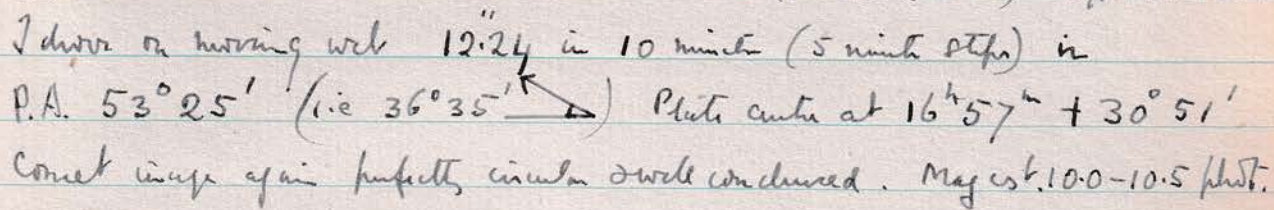 I drove on moving web 12."24 in 10 minutes (5 minute steps) in
P.A. 53° 25' (i.e 36° 35' ) Plate centre at 16ʰ 57ᵐ + 30° 51'
Comet image again perfectly circular & well condensed. Mag est. 10.0-10.5 phot.